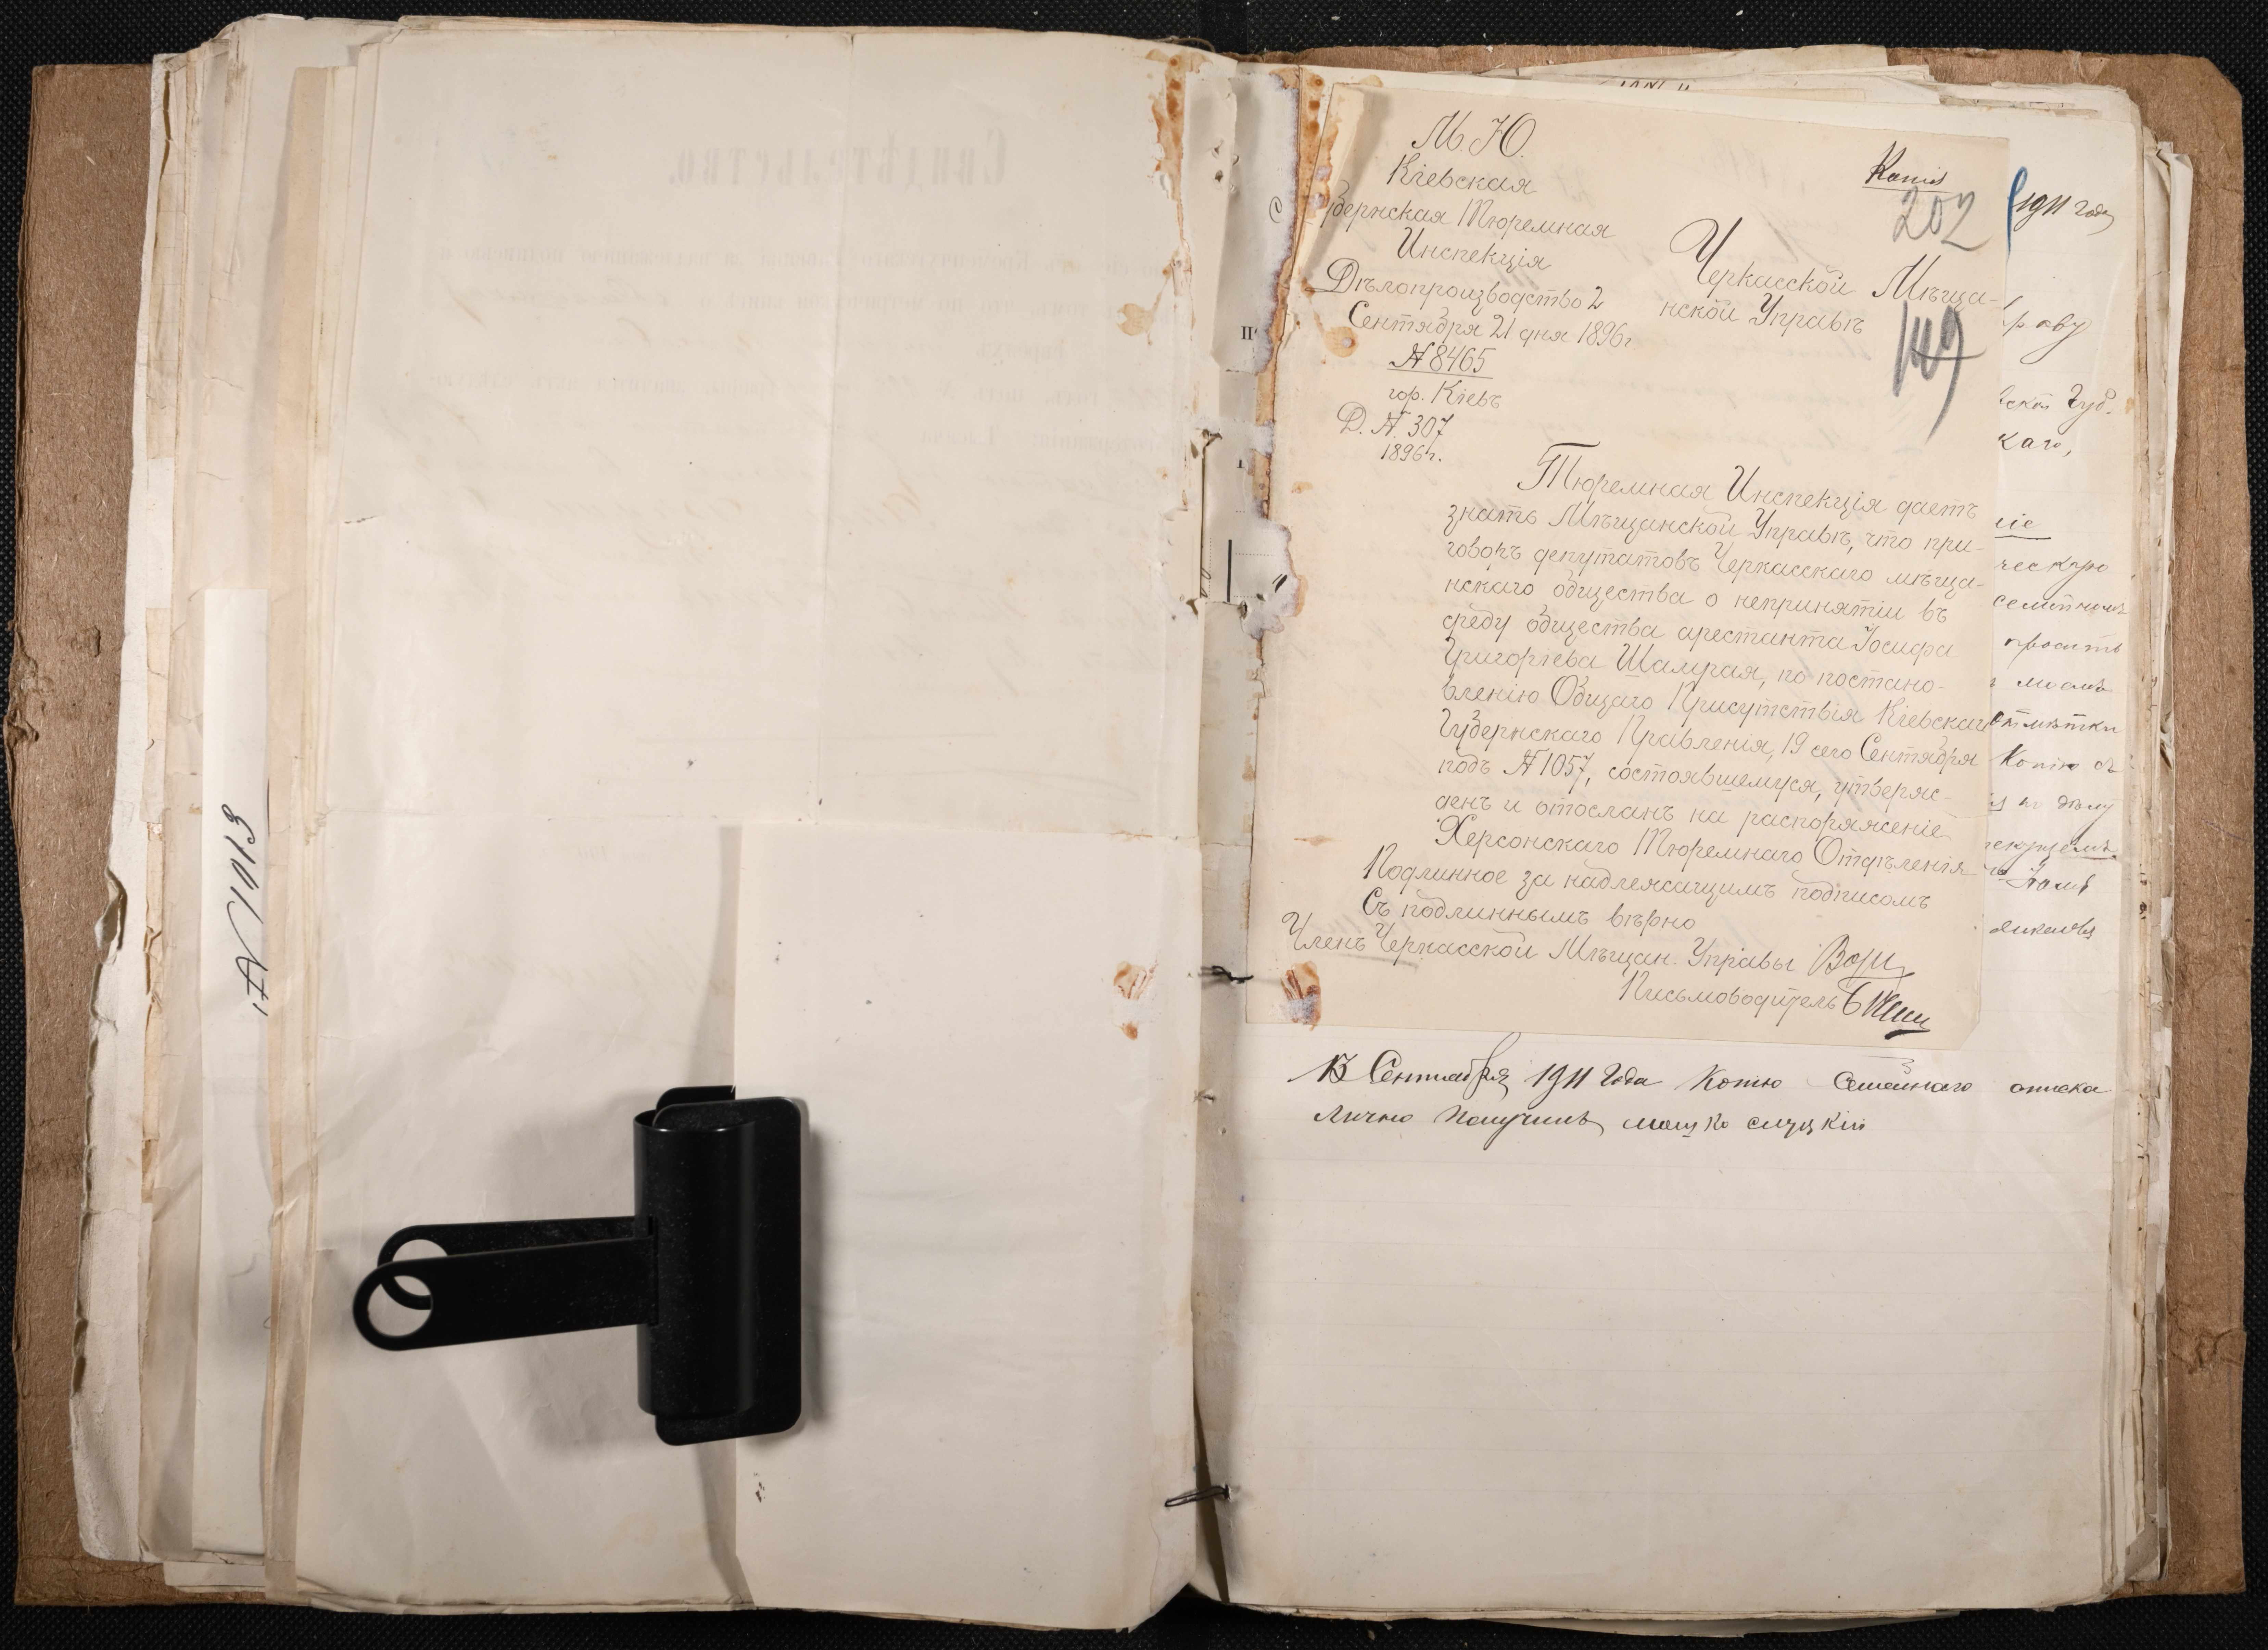 № 1013
М. Ю.
Кіевская
бернская Тюремная
Инспекція
Дѣлопроизводство 2
Сентября 21 дня 1896 г
№ 8465
гор. Кіевъ
Д. №. 307
1896 г.
Копія
202
Черкасской Мѣща-
нской Управѣ
149
Тюремная Инспекція даетъ
знать Мѣщанской Управѣ, что при-
говоръ депутатовъ Черкасскаго мѣща-
нскаго общества о непринятіи въ
среду общества арестанта Іосифа
Григоріева Шамрая, по постано-
вленію Общаго Присутствія Кіевскаго
Губернскаго Правленія, 19 сего Сентября
подъ № 1057, состоявшемуся, утверж-
денъ и отосланъ на распоряженіе
Херсонскаго Тюремнаго Отдѣленія
Подлинное за надлежащимъ подписомъ
Съ подлиннымъ вѣрно
Членъ Черкасской Мѣщан. Управы
Письмоводитель
1911 года
раву
ской Губ.
каго,
ніе
ческую
семейномъ
просить
моемъ
отмѣтки
Копію съ
по дѣлу
13 Сентября 1911 года Копію Семейнаго списка
Лично Получилъ Мошко Слуцкій
Свидѣтельство.